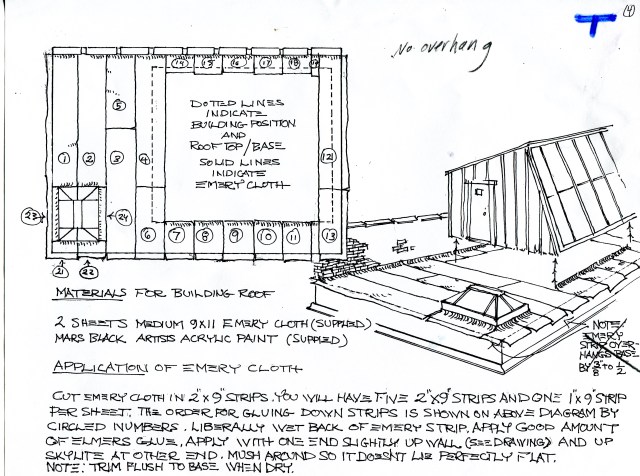 (4)
T
No overhang
14 15 16 17 18 19
5
DOTTED LINES
INDICATE
BUILDING POSITION
AND
ROOF TOP/BASE
SOLID LINES
INDICATE
EMERY CLOTH
1 2 3 4 12
23 24
6 7 8 9 10 11 13
21 22
MATERIALS FOR BUILDING ROOF
2 SHEETS MEDIUM 9X11 EMERY CLOTH (SUPPLIED)
MARS BLACK ARTISTS ACRYLIC PAINT (SUPPLIED)
NOTE:
EMERY
STRIP OVER-
HANGS BASE
BY 3/8 to 1/2
APPLICATION OF EMERY CLOTH
CUT EMERY CLOTH IN 2"x9" STRIPS. YOU WILL HAVE FIVE 2"x9" STRIPS AND ONE 1"x9" STRIP
PER SHEET. THE ORDER FOR GLUING DOWN STRIPS IS SHOWN ON ABOVE DIAGRAM BY
CIRCLED NUMBERS. LIBERALLY WET BACK OF EMERY STRIP, APPLY GOOD AMOUNT
OF ELMERS GLUE, APPLY WITH ONE END SLIGHTLY UP WALL (SEE DRAWING) AND UP
SKYLITE AT OTHER END. MUSH AROUND SO IT DOESN'T LIE PERFECTLY FLAT.
NOTE: TRIM FLUSH TO BASE WHEN DRY.